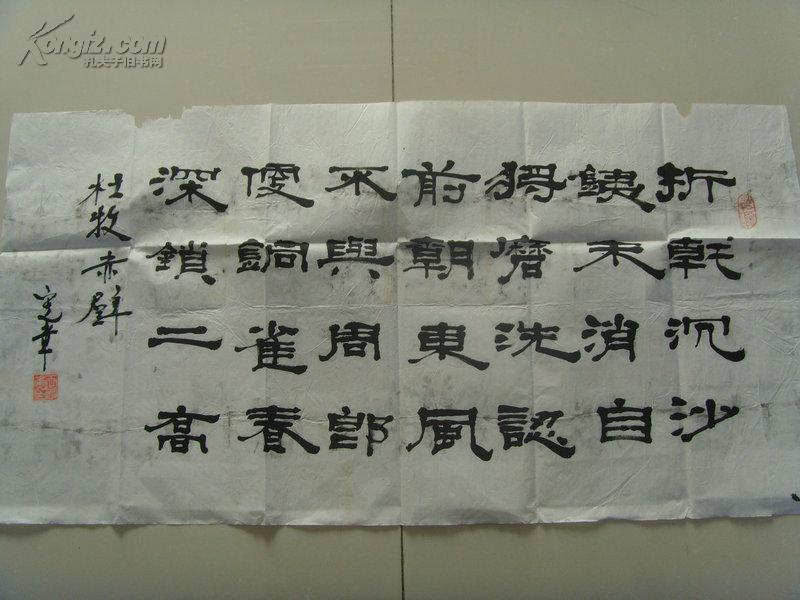 Kongfz.com
孔夫子旧书网
折戟沉沙
銕未消自
將磨洗認
前朝東風
不與周郎
便銅雀春
深鎖二喬
杜牧赤壁